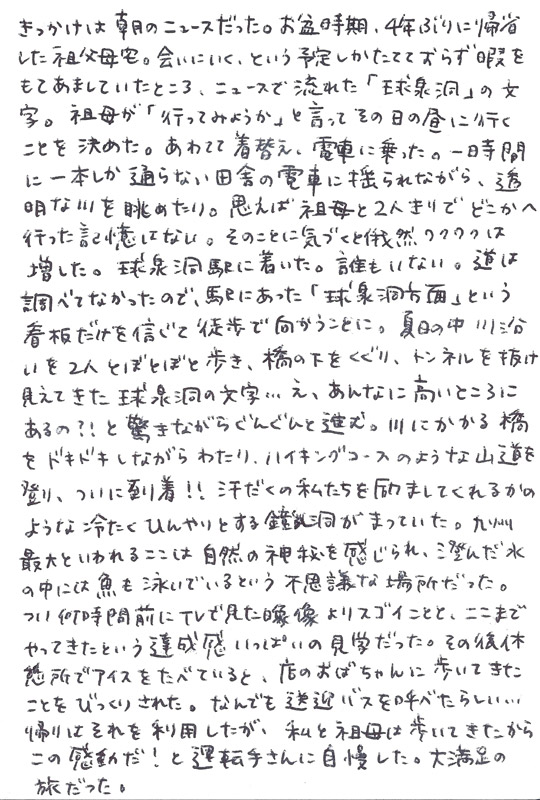 きっかけは朝のニュースだった。お盆時期、4年ぶりに帰省
した祖父母宅。会いにいく、という予定しかたてておらず暇を
もてあましていたところ、ニュースで流れた「球泉洞」の文
字。祖母が「行ってみようか」と言ってその日の昼に行く
ことを決めた。あわてて着替え、電車に乗った。一時間
に一本しか通らない田舎の電車に揺られながら、透
明な川を眺めたり。思えば祖母と2人きりでどこかへ
行った記憶はない。そのことに気づくと俄然ワクワクは
増した。球泉洞駅に着いた。誰もいない。道は
調べてなかったので、駅にあった「球泉洞方面」という
看板だけを信じて徒歩で向かうことに。夏日の中川沿
いを2人とぼとぼと歩き、橋の下をくぐり、トンネルを抜け
見えてきた球泉洞の文字…え、あんなに高いところに
あるの?!と驚きながらぐんぐんと進む。川にかかる橋
をドキドキしながらわたり、ハイキングコースのような山道を
登り、ついに到着!!汗だくの私たちを励ましてくれるかの
ような冷たくひんやりとする鐘乳洞がまっていた。九州
最大といわれるここは自然の神秘を感じられ、澄んだ水
の中には魚も泳いでいるという不思議な場所だった。
つい何時間前にTVで見た映像よりスゴイことと、ここまで
やってきたという達成感いっぱいの見学だった。その後休
憩所でアイスをたべていると、店のおばちゃんに歩いてきた
ことをびっくりされた。なんでも送迎バスを呼べたらしい…
帰りはそれを利用したが、私と祖母は歩いてきたから
この感動だ!と運転手さんに自慢した。大満足の
旅だった。